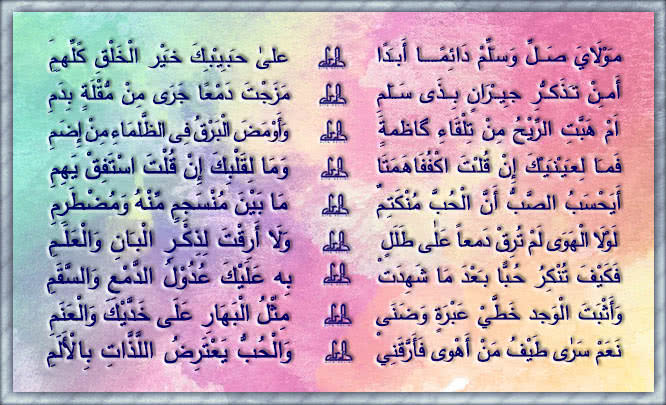 مَوْلَايَ صَلِّ وَسَلِّمْ دَائِمًا أَبَدًا عَلىٰ حَبِيْبِكَ خَيْرِ الْخَلْقِ كُلِّهِمِ
أَمِنْ تَذَكُّرِ جِيْرَانٍ بِذَى سَلَمِ مَزَجْتَ دَمْعًا جَرَى مِنْ مُقْلَةٍ بِدَمِ
اَمْ هَبَّتِ الرِّيْحُ مِنْ تِلْقَاءِ كَاظِمَةٍ وَأَوْمَضَ الْبَرْقُ فِى الظَّلْمَاءِ مِنْ إِضَمِ
فَمَا لِعَيْنَيْكَ إِنْ قُلْتَ اكْفُفَا هَمَتَا وَمَا لِقَلْبِكَ إِنْ قُلْتَ اسْتَفِقْ يَهِمِ
أَيَحْسَبُ الصَّبُّ أَنَّ الْحُبَّ مُنْكَتِمٌ مَا بَيْنَ مُنْسَجِمٍ مِنْهُ وَمُضْطَرِمِ
لَوْلَا الْهَوَى لَمْ تُرِقْ دَمعاً عَلٰى طَلَلٍ وَلَا أَرِقْتَ لِذِكْرِ الْبَانِ وَالْعَلَمِ
فَكَيْفَ تُنْكِرُ حُبًّا بَعْدَ مَا شَهِدَتْ بِه عَلَيْكَ عُدُوْلُ الدَّمْعِ وَالسَّقَمِ
وَأَثْبَتَ الْوَجدِ خَطَّيْ عَبْرَةٍ وَضَنَى مِثْلُ الْبَهَارِ عَلَى خَدَّيْكَ وَالْعَنَمِ
نَعَمْ سَرٰى طَيْفُ مَنْ أَهْوٰى فَأَرَّقَنِيْ وَالْحُبُّ يَعْتَرِضُ اللَّذَّاتِ بِالْأَلَمِ